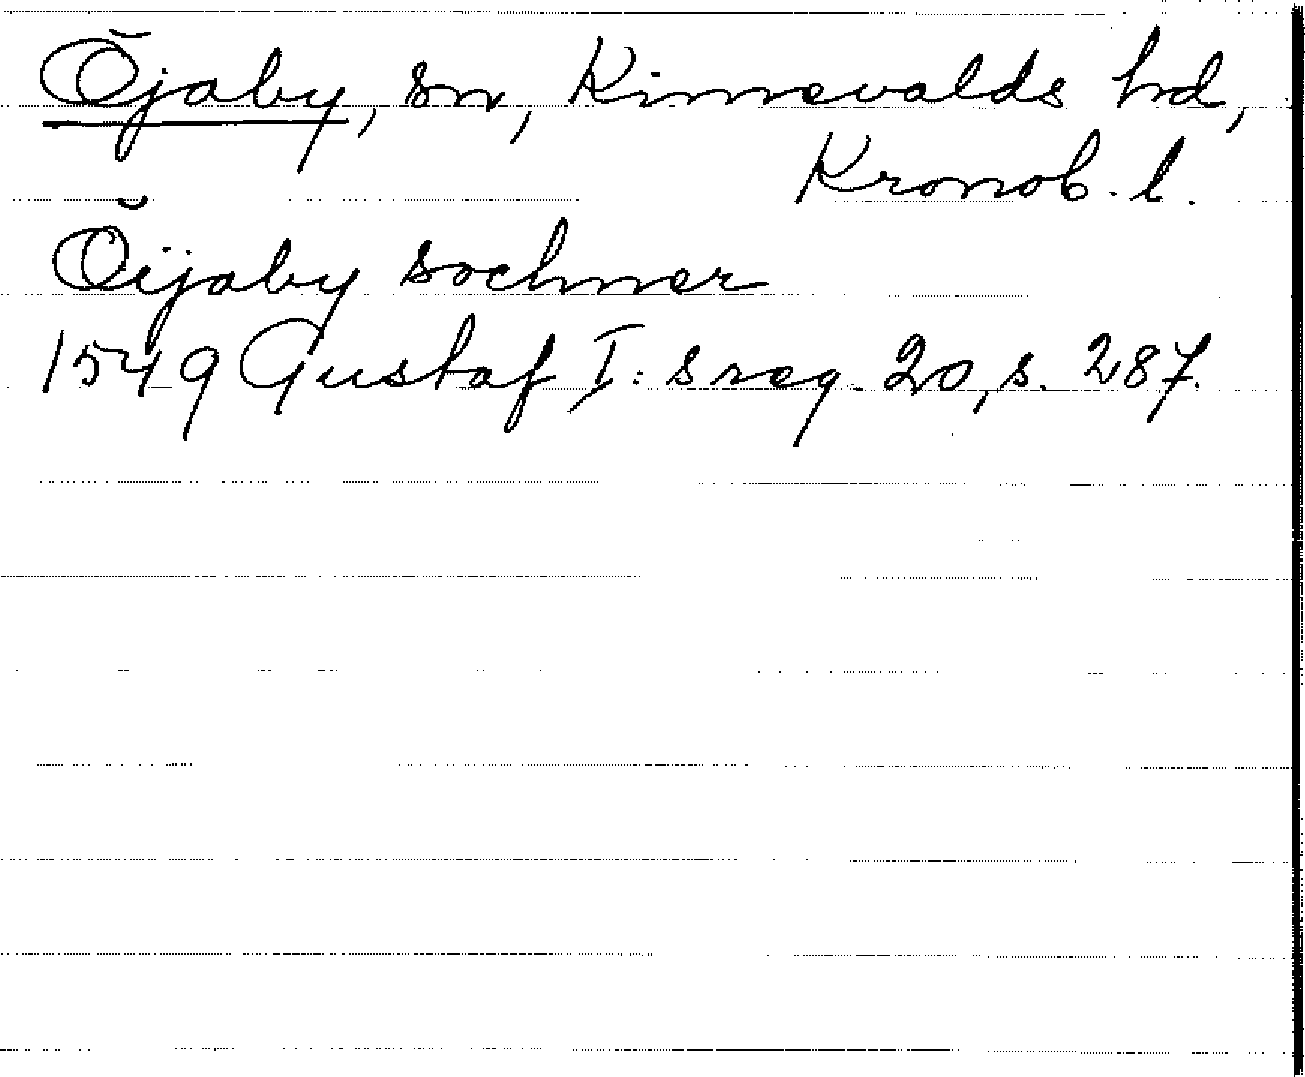 Öjaby, sn, Kinnevalds hd,
Kronob. l.
Öijaby sochner
1549 Gustaf I:s reg. 20, s. 287.